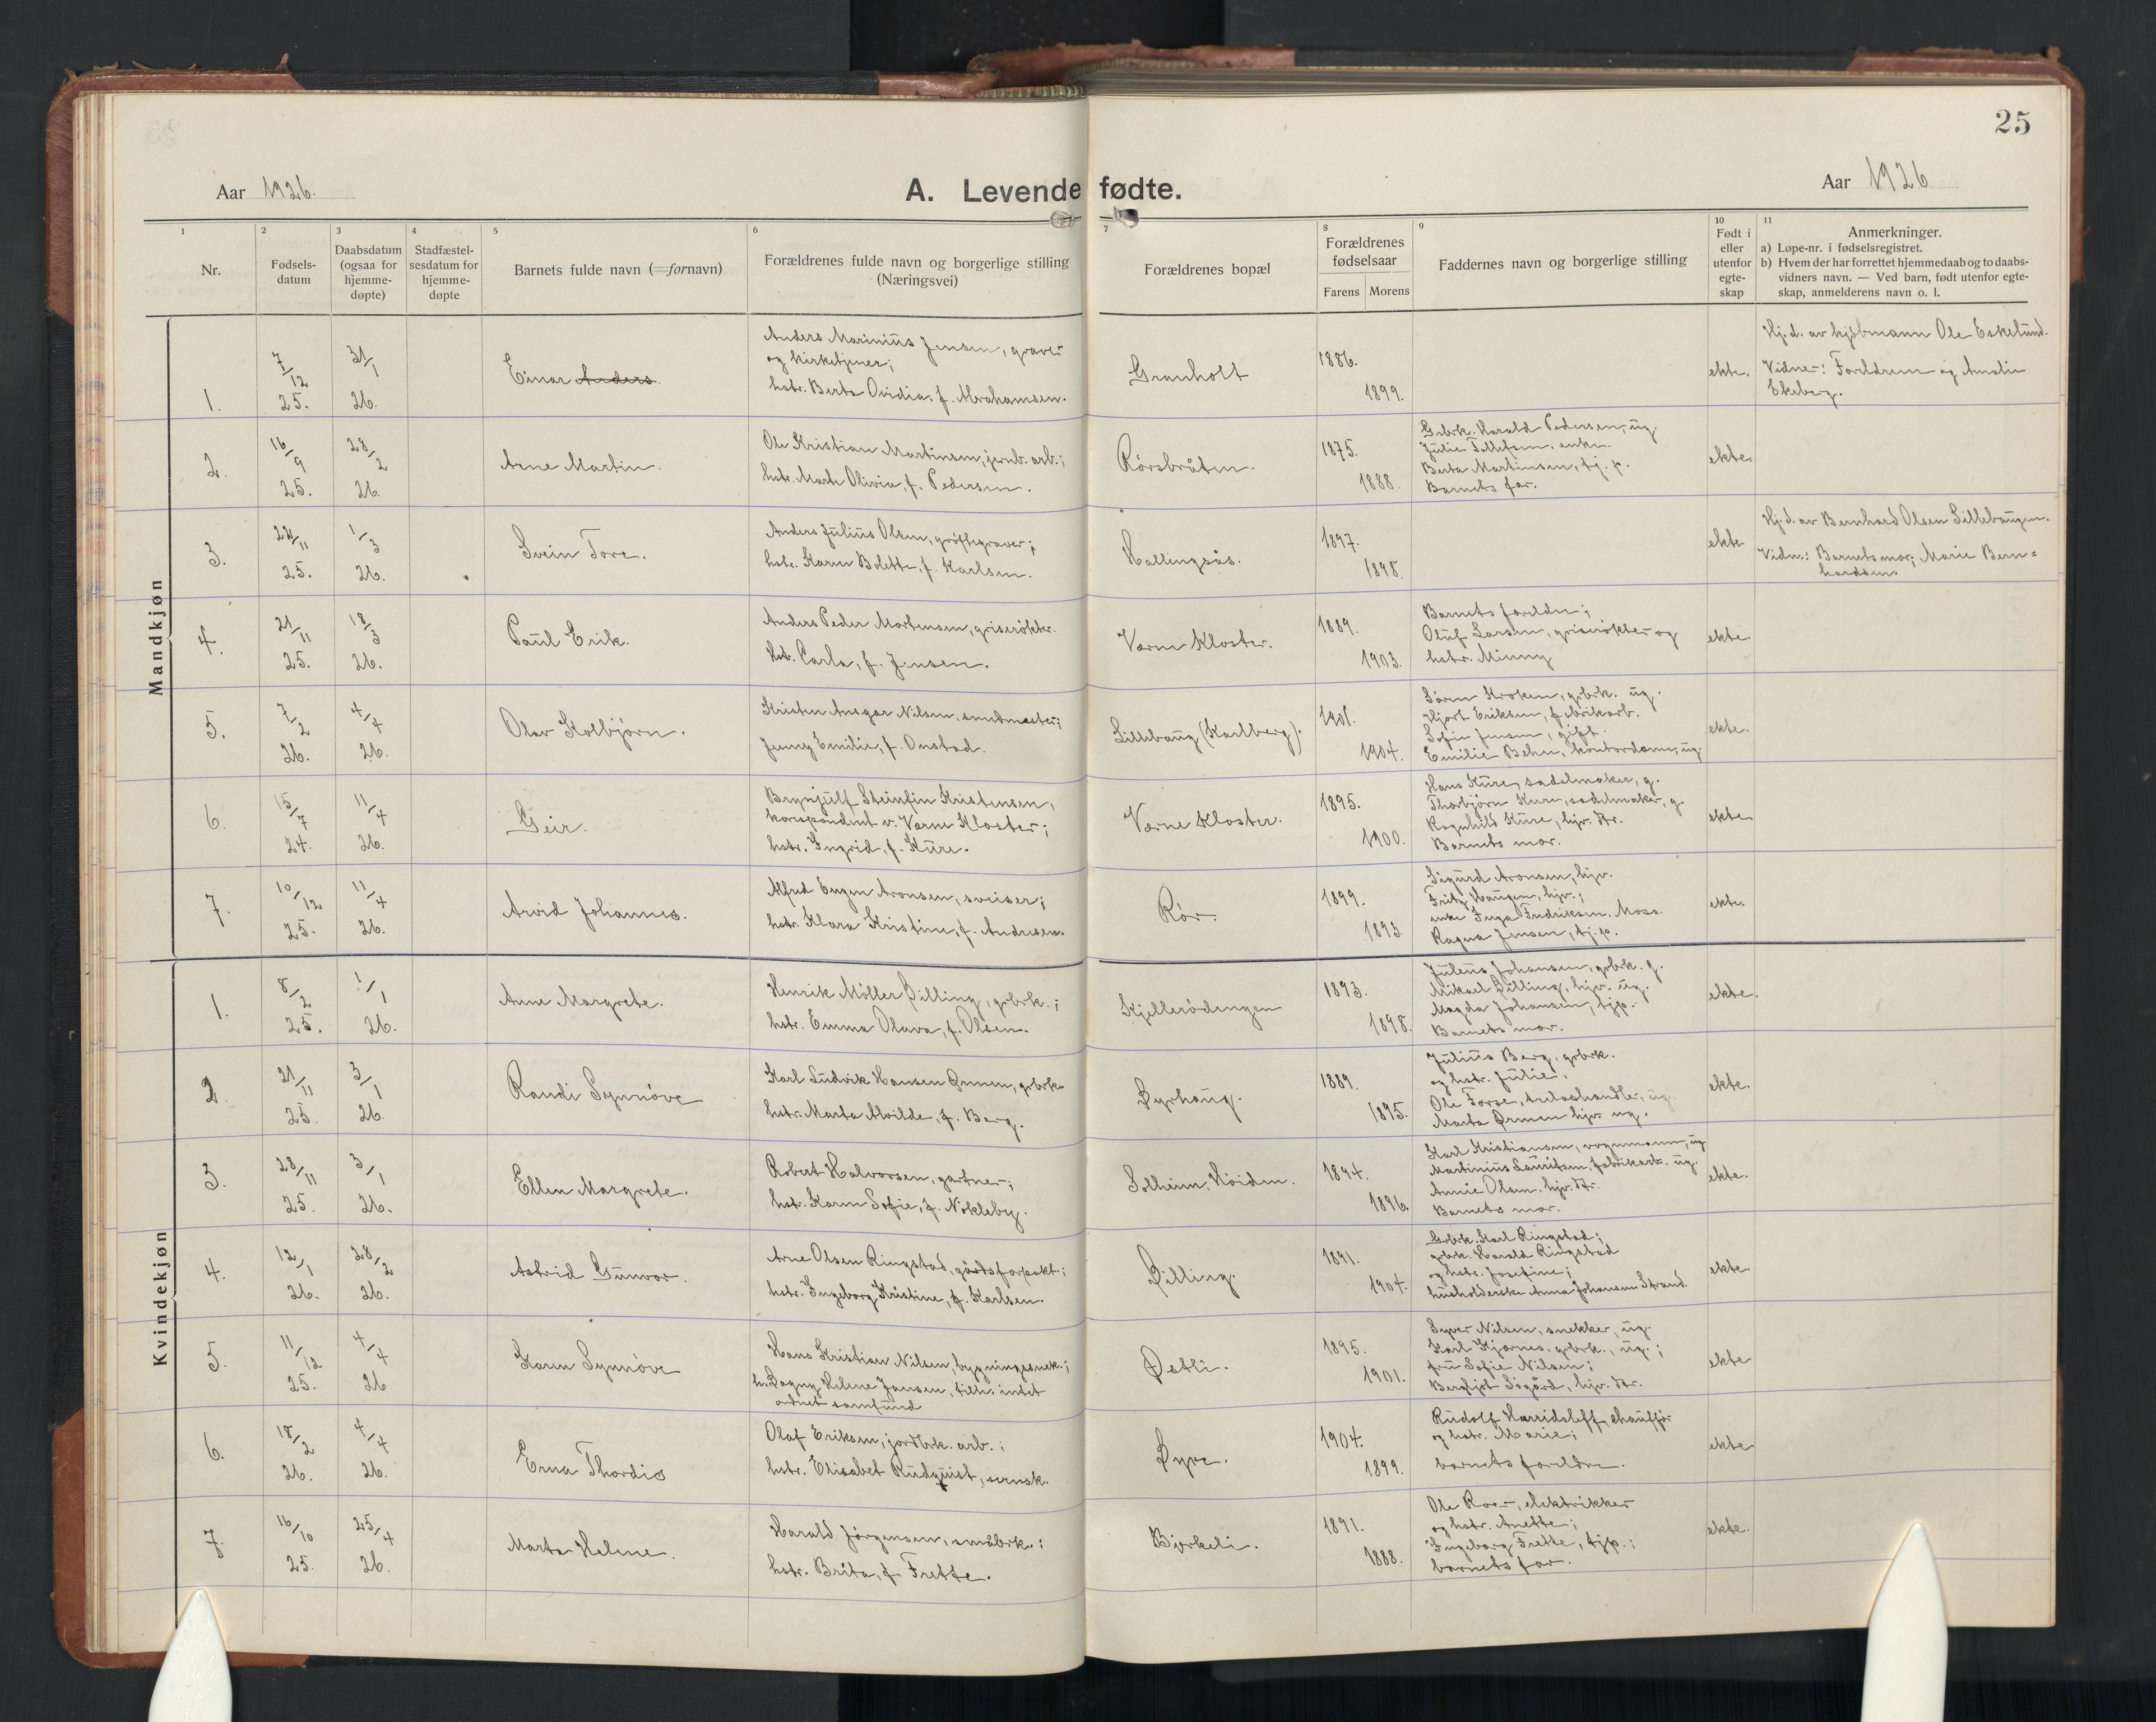 25
Aar 1926.
A. Levende fødte.
Aar 1926
1 2 3 4 5 6 7 8 9 10 11
Nr.
Fødsels-
datum
Daabsdatum
(ogsaa for
hjemme-
døpte)
Stadfæstel-
sesdatum for
hjemme-
døpte
Barnets fulde navn (=fornavn)
Forældrenes fulde navn og borgerlige stilling
(Næringsvei)
Forældrenes bopæl
Forældrenes
fødselsaar
Farens Morens
Faddernes navn og borgerlige stilling
Født i
eller
utenfor
egte-
skap
Anmerkninger.
a) Løpe-nr. i fødselsregistret.
b) Hvem der har forrettet hjemmedaab og to daabs-
vidners navn. — Ved barn, født utenfor egte-
skap, anmelderens navn o. l.
Mandkjøn
1.
7/12
25.
31/1
26.
Einar Anders.
Anders Marinius Jensen, graver
og kirketjener;
hstr. Berta Ovidia, f. Abrahamsen.
Granholt
1886.
1899.
ekte.
Hj.d. av kjøbmann Ole Eskelund.
Vidner: Foreldrene og Amalie
Ekeberg.
2.
16/9
25.
28/2
26.
Arne Martin.
Ole Kristian Martinsen, jernb. arb.;
hstr. Marte Olivia, f. Pedersen.
Rørsbråten.
1875.
1888.
Grbrk. Harald Pedersen, ug.
Julie Tollefsen, enke.
Berta Martinsen, tj.p.
Barnets far.
ekte.
3.
24/11
25.
1/3
26.
Svein Tore.
Anders Julius Olsen, grøftegraver;
hstr. Karen Bolette, f. Karlsen.
Hallingsås.
1897.
1898.
ekte
Hj.d. av Bernhard Olsen Lillebaugen.
Vidn.: Barnets mor; Marie Bern=
hardsen.
4.
21/11
25.
18/3
26.
Paul Erik.
Anders Peder Mortensen, griserøkter.
hstr. Carla, f. Jensen.
Værne Kloster.
1889.
1903.
Barnets foreldre;
Oluf Larsen, griserøkter og
hstr. Minny
ekte
5.
7/2
26.
4/4
26.
Olav Kolbjørn.
Kristen Ansgar Nilsen, smedmester;
Jenny Emilie, f. Onstad.
Lillebaug (Karlberg).
1901.
1904.
Søren Kroken, grbrk. ug.
Hjort Eriksen, fabrikarb.
Sofie Jensen, gift.
Emilie Behn, kontordame, ug.
ekte.
6.
15/7
24.
11/4
26.
Geir.
Brynjulf Steinfin Kristensen,
korespondent v. Værne Kloster;
hstr. Ingrid, f. Kure.
Værne Kloster.
1895.
1900.
Hans Kure, sadelmaker, g.
Thorbjørn Kure, sadelmaker, g.
Ragnhild Kure, hjv. dtr.
Barnets mor.
ekte
7.
10/12
25.
11/4
26.
Arvid Johannes.
Alfred Eugen Aronsen, sveiser;
hstr. Klara Kristine, f. Andresen.
Rør.
1899.
1893
Sigurd Aronsen, hjv.
Fritz Haugen, hjv.;
enke Inga Fredriksen, Moss.
Ragna Jensen, tj.p.
ekte.
Kvindekjøn
1.
8/2
25.
1/1
26.
Anne Margrete.
Henrik Møller Dilling, grbrk.;
hstr. Emma Olava, f. Olsen.
Kjellerødengen
1893.
1898.
Julius Johansen, grbrk. g.
Mikael Dilling, hjv. ug.
Magda Johansen, tjp.
Barnets mor.
ekte.
2.
21/11
25.
3/1
26.
Randi Synnøve
Karl Ludvik Hansen Ørmen, grbrk.
hstr. Marta Alvilde, f. Berg.
Dyrhaug.
1889.
1895.
Julius Berg, grbrk.
og hstr. Julie.
Ole Forse, trelasthandler, ug.
Marta Ørmen hjv. ug.
ekte.
3.
28/11
25.
3/1
26.
Ellen Margrete.
Robert Halvorsen, gartner;
hstr. Karen Sofie, f. Nøkleby.
Solheim, Høiden.
1894.
1896.
Karl Kristiansen, vognmann, ug
Martinius Lauritsen, fabrikarb. ug.
Annie Olsen, hjv. dtr.
Barnets mor.
ekte.
4.
12/1
26.
28/2
26.
Astrid Gunvor.
Arne Olsen Ringstad, gårdsforpakt.;
hstr. Ingeborg Kristine, f. Karlsen.
Dilling.
1891.
1904.
Grbrk. Karl Ringstad;
grbrk. Harald Ringstad
og hstr. Josefine;
husholderske Anna Johansen Strand.
ekte.
5.
11/12
25.
4/4
26
Karen Synnøve
Hans Kristian Nilsen, bygningssnek.;
h. Dagny Helene Jansen, tilh. intet
ordnet samfund
Østli.
1895.
1901.
Syver Nilsen, snekker, ug.
Karl Kjørnes, grbrk., ug.;
fru Sofie Nilsen;
Bergljot Søgård, hjv. dtr.
ekte
6.
18/2
26.
4/4
26.
Erna Thordis
Olaf Eriksen, jordbrk. arb.;
hstr. Elisabet Rudquist, svensk.
Dyre.
1904.
1899.
Rudolf Harridsleff, chauffør
og hstr. Marie;
barnets foreldre.
ekte
7.
16/10
25.
25/4
26.
Marta Helene.
Harald Jørgensen, småbrk.;
hstr. Brita, f. Frette.
Bjerkeli.
1891.
1888.
Ole Roer, elektrikker
og hstr. Anette;
Ingeborg Frette, tjp.;
barnets far.
ekte.